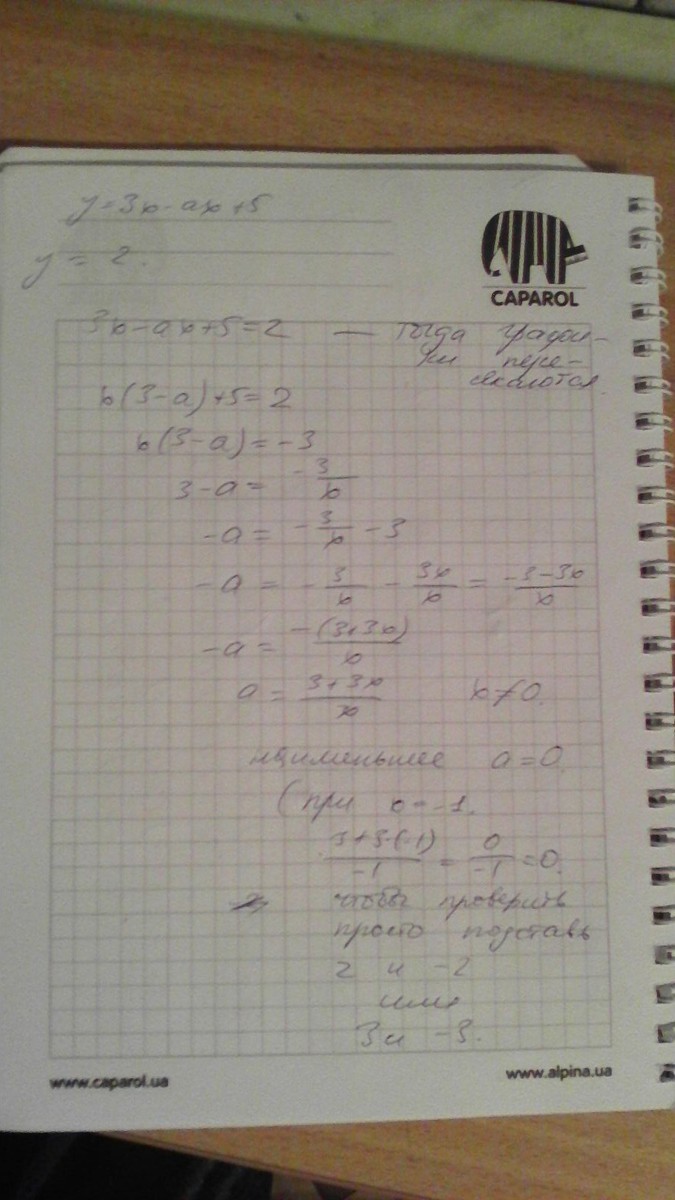 y=3x-ax+5
y = 2.
CAPAROL
3x-ax+5=2 — тогда графи-
ки пере-
секаются.
x(3-a)+5=2
x(3-a)=-3
3-a= -3/x
-a= -3/x -3
-a = -3/x - 3x/x = -3-3x/x
-a= -(3+3x)/x
a= 3+3x/x x≠0.
наименьшее a=0.
(при x=-1.
3+3·(-1)/-1 = 0/-1 =0.
чтобы проверить
просто подставь
2 и -2
или
3 и -3.
www.caparol.ua
www.alpina.ua